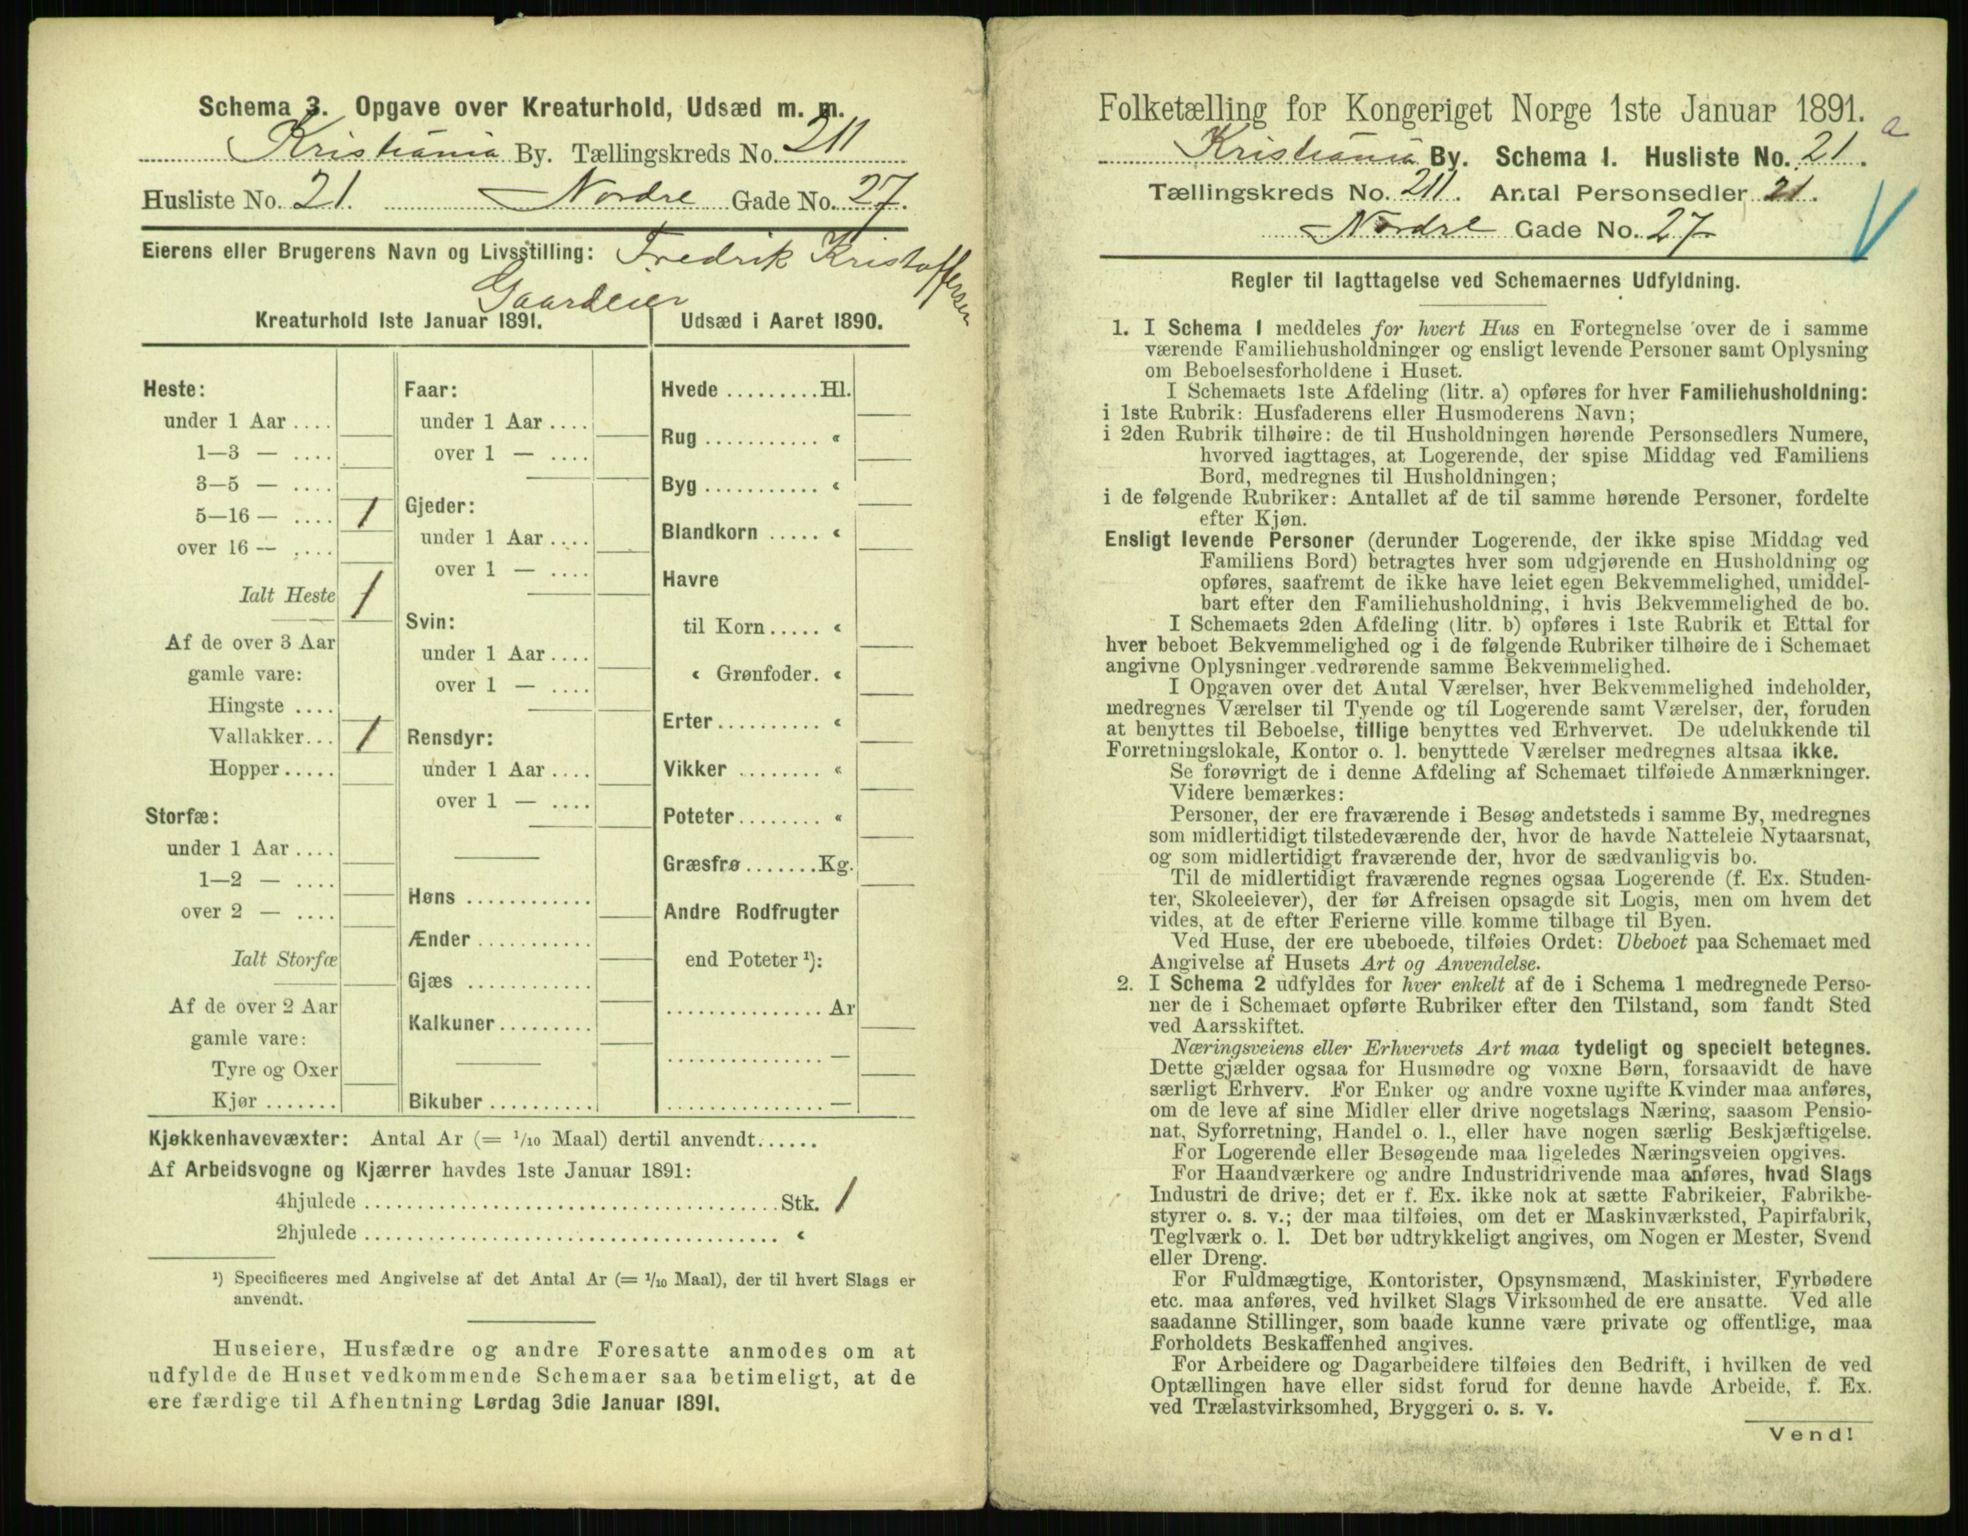 Schema 3. Opgave over Kreaturhold, Udsæd m. m.
Kristiania By. Tællingskreds No. 211
Husliste No. 21. Nordre Gade No. 27.
Eierens eller Brugerens Navn og Livsstilling: Fredrik Kristoffersen
Gaardeier
Kreaturhold 1ste Januar 1891.
Heste:
under 1 Aar ....
1—3 — ....
3—5 — ....
5—16 — .... 1
over 16 — ....
Ialt Heste 1
Af de over 3 Aar
gamle vare:
Hingste ....
Vallakker... 1
Hopper.....
Storfæ:
under 1 Aar ....
1—2 — ....
over 2 — ....
Ialt Storfæ
Af de over 2 Aar
gamle vare:
Tyre og Oxer
Kjør .......
Faar:
under 1 Aar ....
over 1 — ....
Gjeder:
under 1 Aar ....
over 1 — ....
Svin:
under 1 Aar ....
over 1 — ....
Rensdyr:
under 1 Aar ....
over 1 — ....
Høns ............
Ænder...........
Gjæs ............
Kalkuner.........
Bikuber ..........
Udsæd i Aaret 1890.
Hvede .........Hl.
Rug ........... «
Byg ........... «
Blandkorn ..... «
Havre
til Korn..... «
« Grønfoder. «
Erter.......... «
Vikker ........ «
Poteter........ «
Græsfrø.......Kg.
Andre Rodfrugter
end Poteter ¹):
...............Ar
...............—
...............—
Kjøkkenhavevæxter: Antal Ar (= 1/10 Maal) dertil anvendt......
Af Arbeidsvogne og Kjærrer havdes 1ste Januar 1891:
4hjulede ....................................... Stk. 1
2hjulede ....................................... «
¹) Specificeres med Angivelse af det Antal Ar (= 1/10 Maal), der til hvert Slags er
anvendt.
Huseiere, Husfædre og andre Foresatte anmodes om at
udfylde de Huset vedkommende Schemaer saa betimeligt, at de
ere færdige til Afhentning Lørdag 3die Januar 1891.
Folketælling for Kongeriget Norge 1ste Januar 1891.
a
Kristiania By. Schema 1. Husliste No. 21.
Tællingskreds No. 211. Antal Personsedler 21.
Nordre Gade No. 27
Regler til Iagttagelse ved Schemaernes Udfyldning.
1. I Schema 1 meddeles for hvert Hus en Fortegnelse over de i samme
værende Familiehusholdninger og ensligt levende Personer samt Oplysning
om Beboelsesforholdene i Huset.
I Schemaets 1ste Afdeling (litr. a) opføres for hver Familiehusholdning:
i 1ste Rubrik: Husfaderens eller Husmoderens Navn;
i 2den Rubrik tilhøire: de til Husholdningen hørende Personsedlers Numere,
hvorved iagttages, at Logerende, der spise Middag ved Familiens
Bord, medregnes til Husholdningen;
i de følgende Rubriker: Antallet af de til samme hørende Personer, fordelte
efter Kjøn.
Ensligt levende Personer (derunder Logerende, der ikke spise Middag ved
Familiens Bord) betragtes hver som udgjørende en Husholdning og
opføres, saafremt de ikke have leiet egen Bekvemmelighed, umiddel-
bart efter den Familiehusholdning, i hvis Bekvemmelighed de bo.
I Schemaets 2den Afdeling (litr. b) opføres i 1ste Rubrik et Ettal for
hver beboet Bekvemmelighed og i de følgende Rubriker tilhøire de i Schemaet
angivne Oplysninger vedrørende samme Bekvemmelighed.
I Opgaven over det Antal Værelser, hver Bekvemmelighed indeholder,
medregnes Værelser til Tyende og til Logerende samt Værelser, der, foruden
at benyttes til Beboelse, tillige benyttes ved Erhvervet. De udelukkende til
Forretningslokale, Kontor o. l. benyttede Værelser medregnes altsaa ikke.
Se forøvrigt de i denne Afdeling af Schemaet tilføiede Anmærkninger.
Videre bemærkes:
Personer, der ere fraværende i Besøg andetsteds i samme By, medregnes
som midlertidigt tilstedeværende der, hvor de havde Natteleie Nytaarsnat,
og som midlertidigt fraværende der, hvor de sædvanligvis bo.
Til de midlertidigt fraværende regnes ogsaa Logerende (f. Ex. Studen-
ter, Skoleelever), der før Afreisen opsagde sit Logis, men om hvem det
vides, at de efter Ferierne ville komme tilbage til Byen.
Ved Huse, der ere ubeboede, tilføies Ordet: Ubeboet paa Schemaet med
Angivelse af Husets Art og Anvendelse.
2. I Schema 2 udfyldes for hver enkelt af de i Schema 1 medregnede Perso-
ner de i Schemaet opførte Rubriker efter den Tilstand, som fandt Sted
ved Aarsskiftet.
Næringsveiens eller Erhvervets Art maa tydeligt og specielt betegnes.
Dette gjælder ogsaa for Husmødre og voxne Børn, forsaavidt de have
særligt Erhverv. For Enker og andre voxne ugifte Kvinder maa anføres,
om de leve af sine Midler eller drive nogetslags Næring, saasom Pensio-
nat, Syforretning, Handel o. l., eller have nogen særlig Beskjæftigelse.
For Logerende eller Besøgende maa ligeledes Næringsveien opgives.
For Haandværkere og andre Industridrivende maa anføres, hvad Slags
Industri de drive; det er f. Ex. ikke nok at sætte Fabrikeier, Fabrikbe-
styrer o. s. v.; der maa tilføies, om det er Maskinværksted, Papirfabrik,
Teglværk o. l. Det bør udtrykkeligt angives, om Nogen er Mester, Svend
eller Dreng.
For Fuldmægtige, Kontorister, Opsynsmænd, Maskinister, Fyrbødere
etc. maa anføres, ved hvilket Slags Virksomhed de ere ansatte. Ved alle
saadanne Stillinger, som baade kunne være private og offentlige, maa
Forholdets Beskaffenhed angives.
For Arbeidere og Dagarbeidere tilføies den Bedrift, i hvilken de ved
Optællingen have eller sidst forud for denne havde Arbeide, f. Ex.
ved Trælastvirksomhed, Bryggeri o. s. v.
Vend!